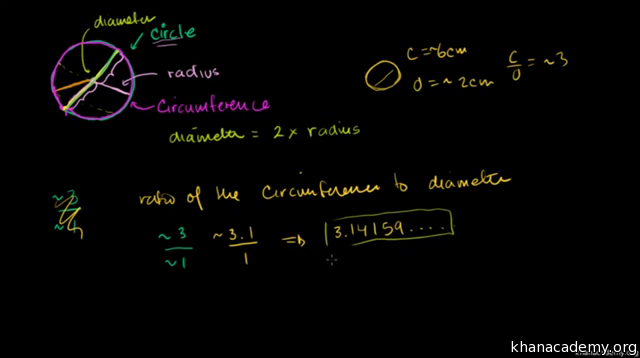 diameter
circle
radius
circumference
diameter = 2 x radius
c = ~6cm
D = ~2cm
c/D = ~3
ratio of the circumference to diameter
~3/~1
~3.1/1 ⇒ 3.14159....
khanacademy.org